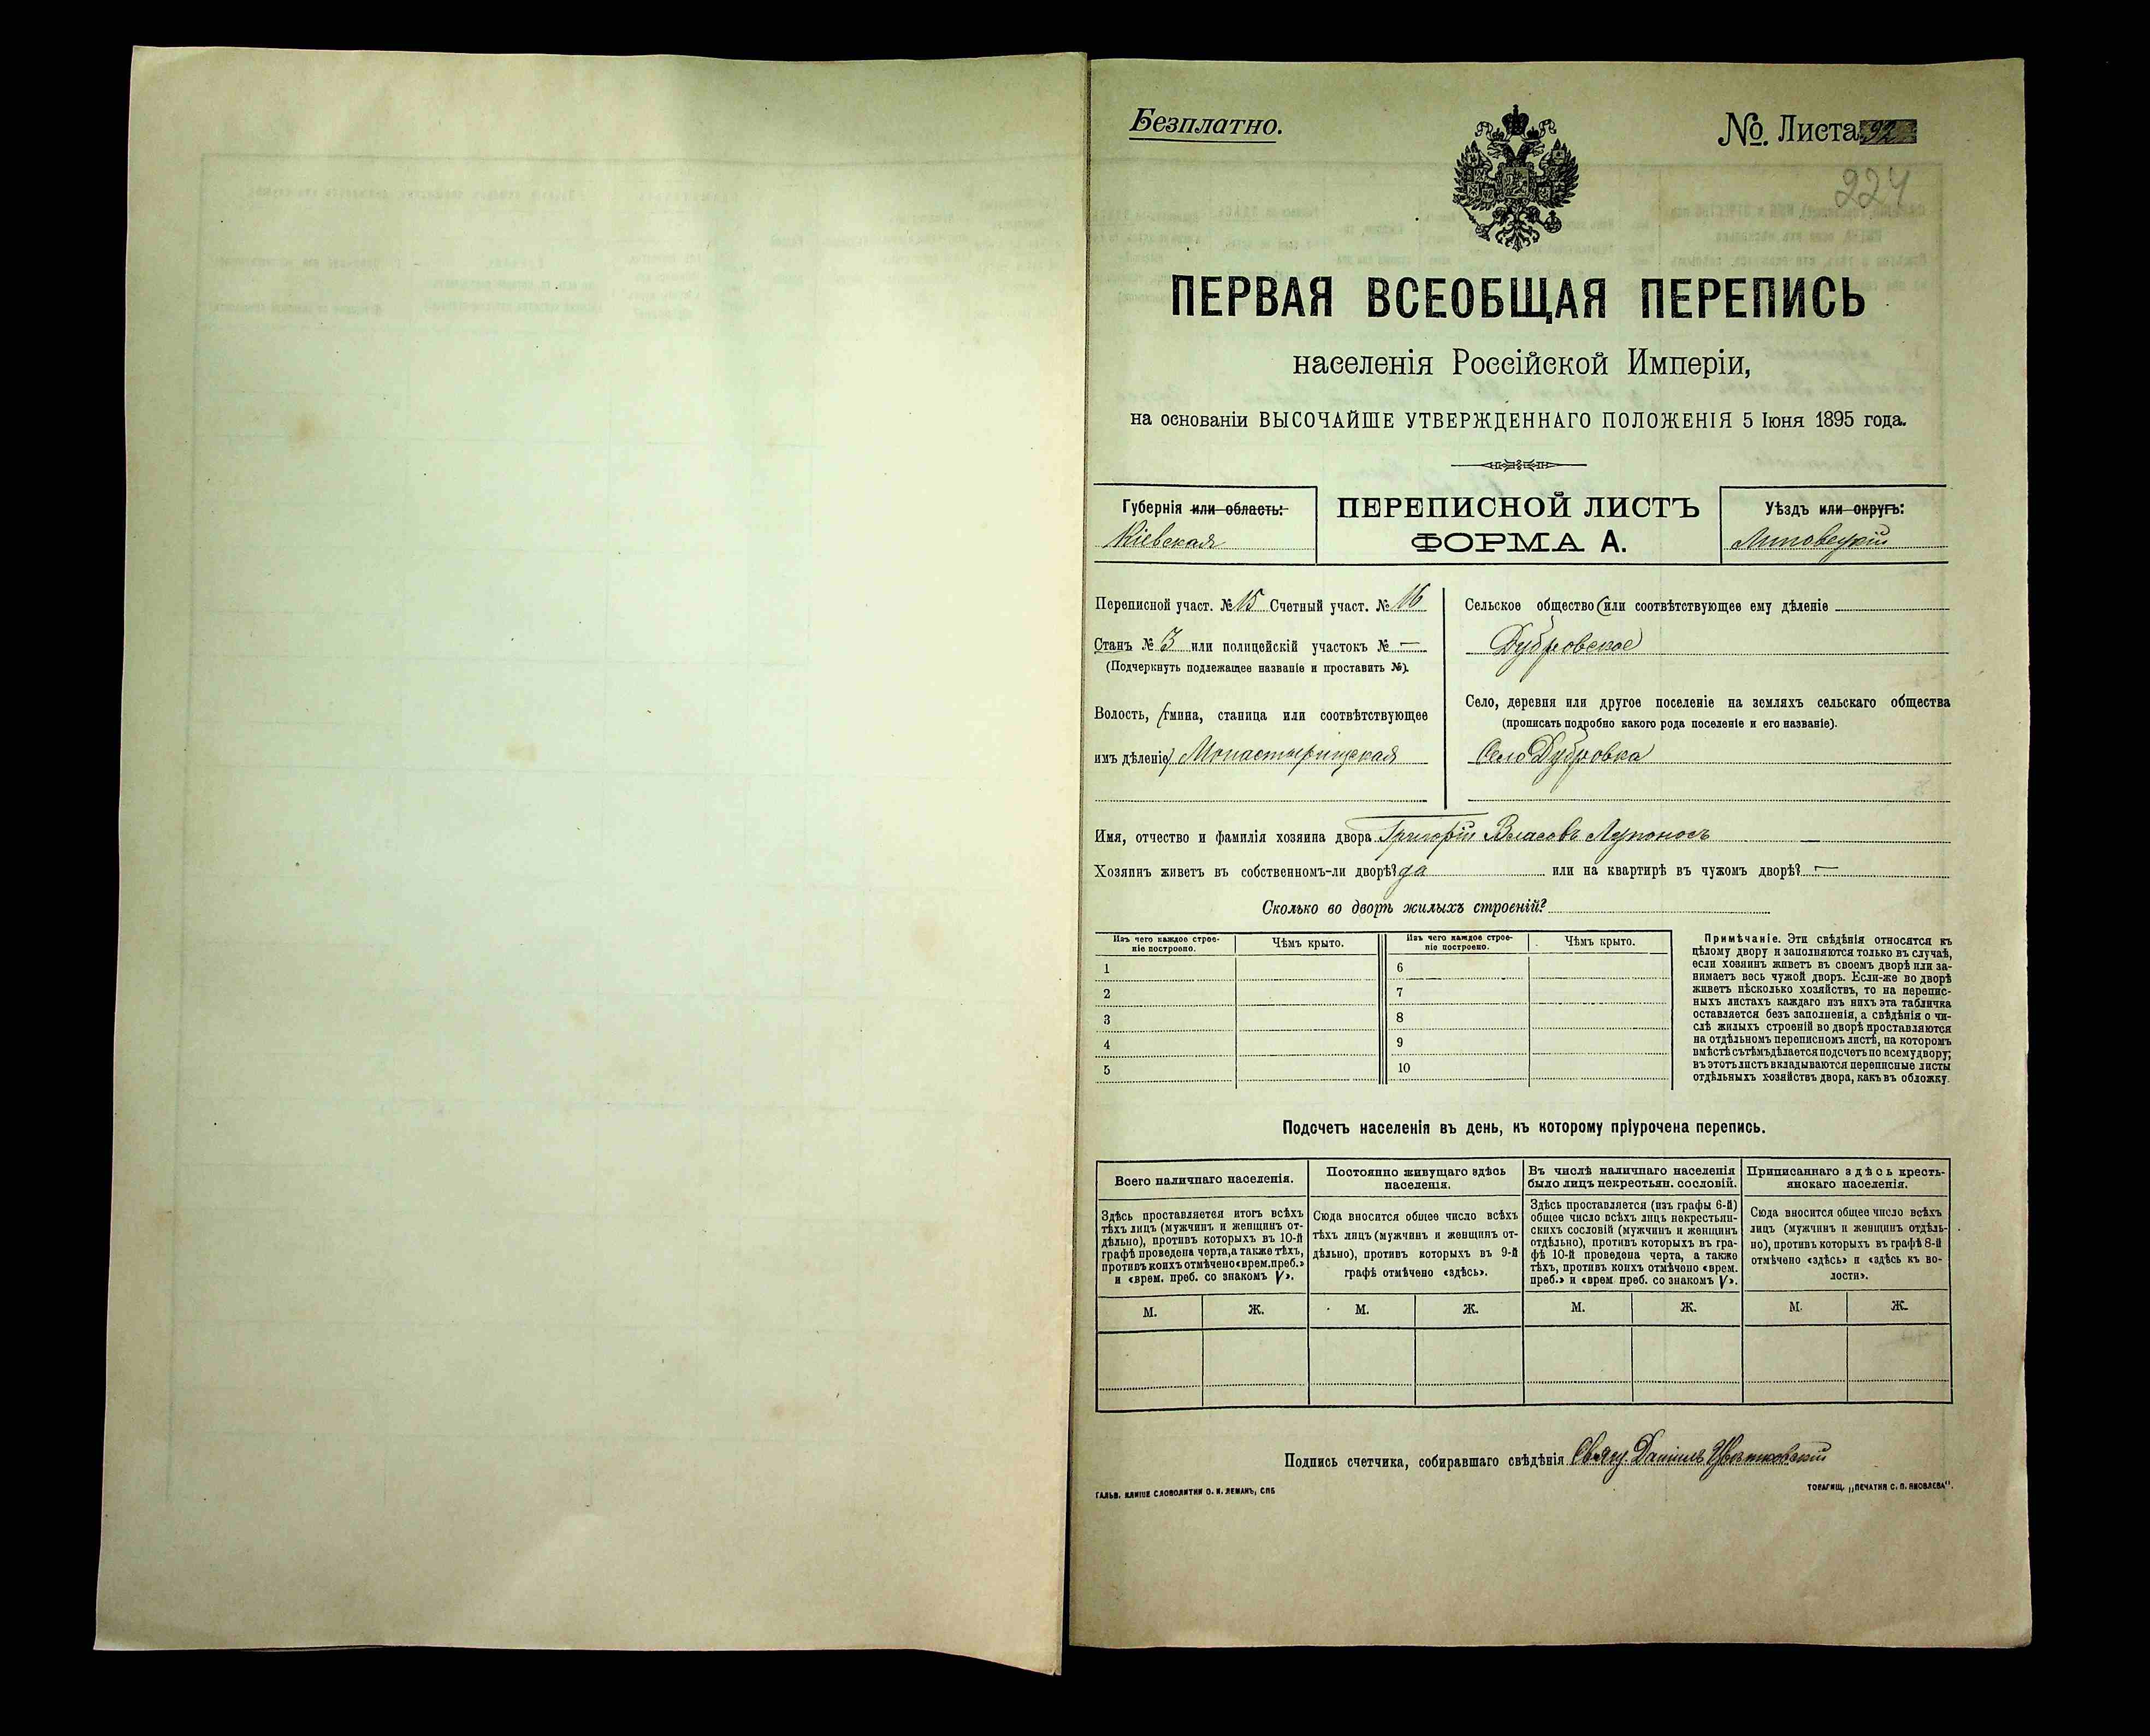 Безплатно.
№. Листа 92
224
ПЕРВАЯ ВСЕОБЩАЯ ПЕРЕПИСЬ
населенія Россійской Имперіи,
на основаніи ВЫСОЧАЙШЕ УТВЕРЖДЕННАГО ПОЛОЖЕНІЯ 5 Іюня 1895 года.
Губернія или область:
Кіевская
ПЕРЕПИСНОЙ ЛИСТЪ
ФОРМА А.
Уѣздъ или округъ:
Липовецкій
Переписной участ. № 15 Счетный участ. № 16
Станъ № 3 или полицейскій участокъ № —
(Подчеркнуть подлежащее названіе и проставить №).
Волость, (гмина, станица или соотвѣтствующее
имъ дѣленіе) Монастырищская
Сельское общество (или соотвѣтствующее ему дѣленіе
Дубровское
Село, деревня или другое поселеніе на земляхъ сельскаго общества
(прописать подробно какого рода поселеніе и его названіе).
Село Дубровка
Имя, отчество и фамилія хозяина двора Григорій Власовъ Лупоносъ
Хозяинъ живетъ въ собственномъ-ли дворѣ? да или на квартирѣ въ чужомъ дворѣ? —
Сколько во дворѣ жилыхъ строеній?
Изъ чего каждое строе-
ніе построено.
Чѣмъ крыто.
Изъ чего каждое строе-
ніе построено.
Чѣмъ крыто.
1
6
2
7
3
8
4
9
5
10
Примѣчаніе. Эти свѣдѣнія относятся къ
цѣлому двору и заполняются только въ случаѣ,
если хозяинъ живетъ въ своемъ дворѣ или за-
нимаетъ весь чужой дворъ. Если-же во дворѣ
живетъ нѣсколько хозяйствъ, то на перепис-
ныхъ листахъ каждаго изъ нихъ эта табличка
оставляется безъ заполненія, а свѣдѣнія о чи-
слѣ жилыхъ строеній во дворѣ проставляются
на отдѣльномъ переписномъ листѣ, на которомъ
вмѣстѣ съ тѣмъ дѣлается подсчетъ по всему двору;
въ этотъ листъ вкладываются переписные листы
отдѣльныхъ хозяйствъ двора, какъ въ обложку.
Подсчетъ населенія въ день, къ которому пріурочена перепись.
Всего наличнаго населенія.
Здѣсь проставляется итогъ всѣхъ
тѣхъ лицъ (мужчинъ и женщинъ от-
дѣльно), противъ которыхъ въ 10-й
графѣ проведена черта, а также тѣхъ,
противъ коихъ отмѣчено «врем. преб.»
и «врем. преб. со знакомъ V».
М. Ж.
Постоянно живущаго здѣсь
населенія.
Сюда вносится общее число всѣхъ
тѣхъ лицъ (мужчинъ и женщинъ от-
дѣльно), противъ которыхъ въ 9-й
графѣ отмѣчено «здѣсь».
М. Ж.
Въ числѣ наличнаго населенія
было лицъ некрестьян. сословій.
Здѣсь проставляется (изъ графы 6-й)
общее число всѣхъ лицъ некрестьян-
скихъ сословій (мужчинъ и женщинъ
отдѣльно), противъ которыхъ въ гра-
фѣ 10-й проведена черта, а также
тѣхъ, противъ коихъ отмѣчено «врем.
преб.» и «врем преб. со знакомъ V».
М. Ж.
Приписаннаго здѣсь кресть-
янскаго населенія.
Сюда вносится общее число всѣхъ
лицъ (мужчинъ и женщинъ отдѣль-
но), противъ которыхъ въ графѣ 8-й
отмѣчено «здѣсь» и «здѣсь къ во-
лости».
М. Ж.
Подпись счетчика, собиравшаго свѣдѣнія Свящ. Даніилъ Цвѣтковскій
ГАЛЬВ. КЛИШЕ СЛОВОЛИТНИ О. И. ЛЕМАНЪ, СПБ
ТОВАРИЩ. „ПЕЧАТНЯ С. П. ЯКОВЛЕВА".